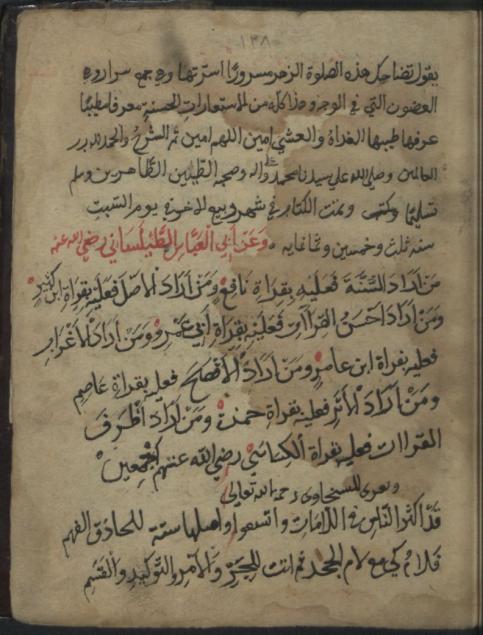 ١٣٨
يقول تضاحك هذه الصلوة الزهر مسرورا اسرتها وهي جمع سرار وهي
الغضون التي في الوجه وهذا كله من الاستعارات الحسنة معرفا مطيبا
عرفها طيبها الغداة والعشي امين اللهم امين تم الشرح والحمد لله رب
العالمين وصلى الله علي سيدنا محمد واله وصحبه الطيبين الطاهرين وسلم
تسليما وتمت الكتاب في شهر ربيع الاخرة يوم السبت
سنة ثلث وخمسين وثمانمايه وعن أبي العباس الطيلساني رضي الله عنه
من اراد السنة فعليه بقراة نافع ومن اراد الاصل فعليه بقراة ابن كثير
ومن اراد احسن القراآت فعليه بقراة أبي عمرو ومن اراد الأغراب
فعليه بقراة ابن عامر ومن اراد الأفصح فعليه بقراة عاصم
ومن اراد الأثر فعليه بقراة حمزة ومن اراد أظرف
القراات فعليه بقراة الكسائي رضي الله عنهم اجمعين
ويعزى للسخاوي رحمه الله تعالى
قد أكثر الناس في اللامات واتسعوا واصلها ستة للحاذق الفهم
فلام كي مع لام الجحد ثم اتت للجر والأمر والتوكيد والقسم